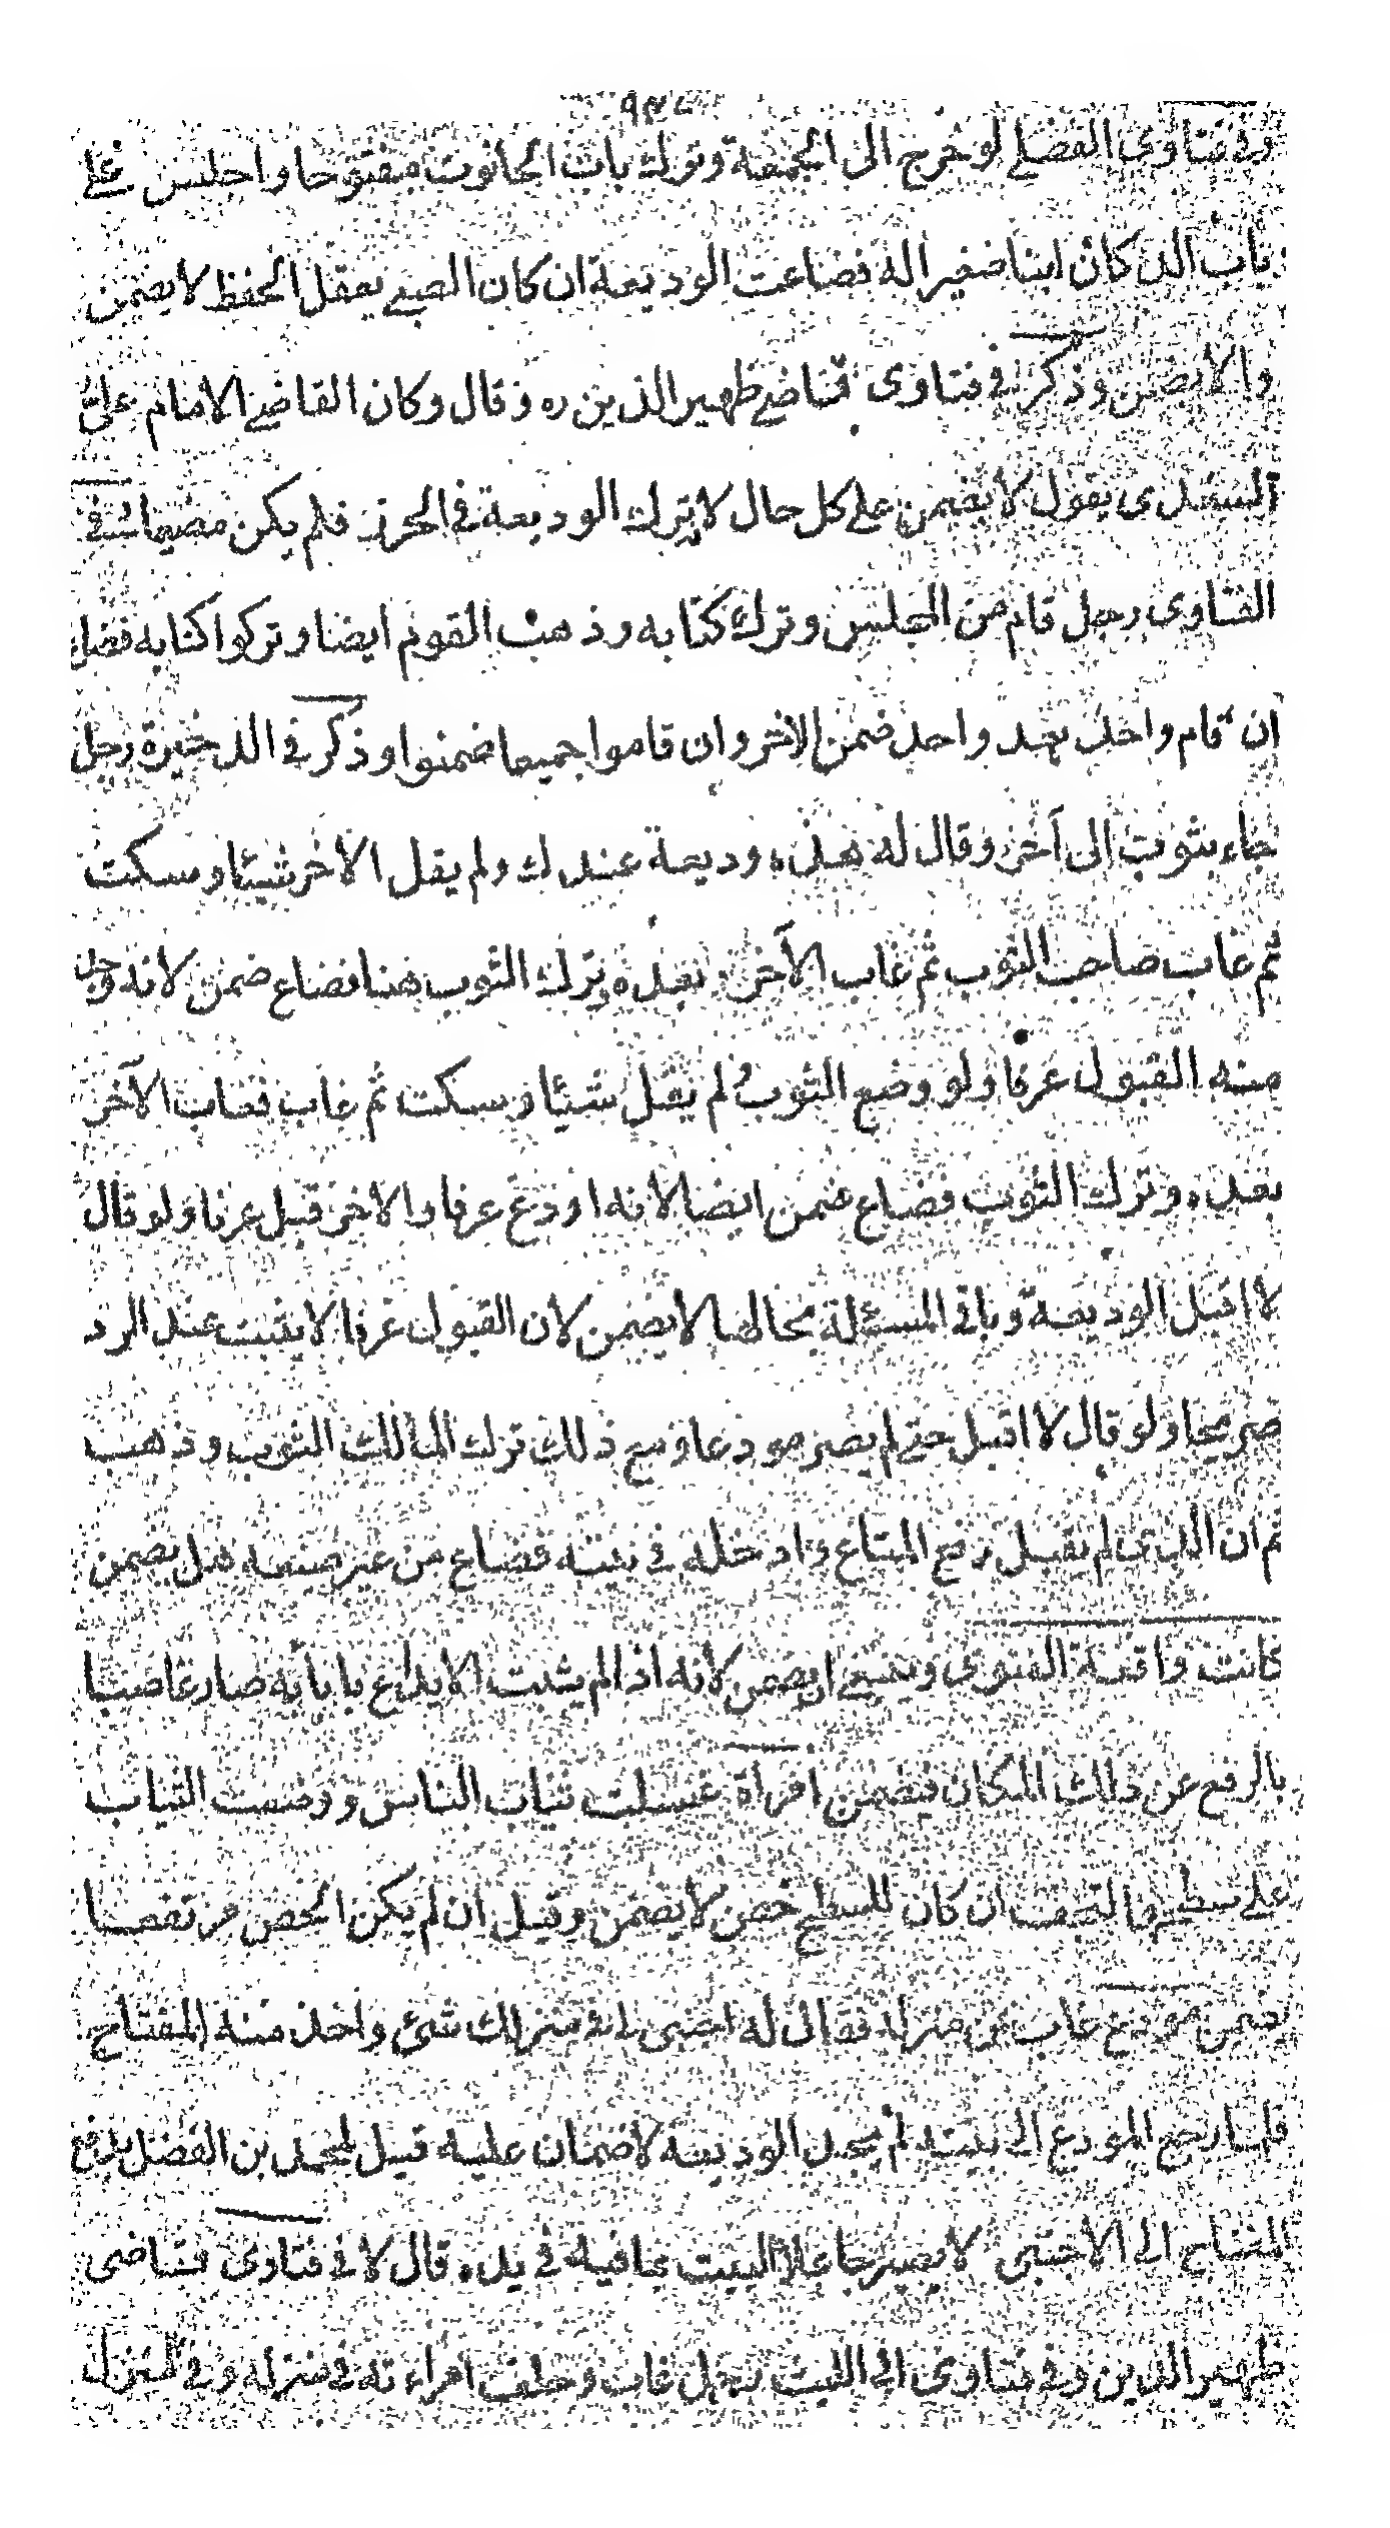 وفى فتاوى الفضلے لو خرج الى الجمعة وترك باب الحانوت مفتوحا واجلس على
باب الدكان ابنا صغيرا له فضاعت الوديعة ان كان الصبے يعقل الحفظ لا يضمن
والا يضمن وذكر فى فتاوى قاضے ظهير الدين ره وقال وكان القاضے الامام على
السغدى يقول لا يضمن على كل حال لا ترك الوديعة فى الحرز فلم يكن مضيعا فى
الفتاوى رجل قام من المجلس وترك كتابه وذهب القوم ايضا وتركوا كتابه فضاع
ان قام واحد بعد واحد ضمن الاخر وان قاموا جميعا ضمنوا وذكر فى الذخيرة رجل
جاء بثوب الى آخر وقال له هذه وديعة عندك ولم يقل الاخر شيئا وسكت
ثم غاب صاحب الثوب ثم غاب الآخر بعده وترك الثوب هنا فضاع ضمن لانه وجد
منه القبول عرفا ولو وضع الثوب ولم يقل شيئا وسكت ثم غاب فغاب الآخر
بعده وترك الثوب فضاع ضمن ايضا لانه اودع عرفا والاخر قبل عرفا ولو قال
لا اقبل الوديعة وباقى المسئلة بحالها لا يضمن لان القبول عرفا لا يثبت عند الرد
صريحا ولو قال لا اقبل حتى لم يصر مودعا ومع ذلك ترك المالك الثوب وذهب
ثم ان الذى لم يقبل رفع المتاع وادخله فى بيته فضاع من غير صنعه هل يضمن
كانت واقعة الفتوى وينبغى ان يضمن لانه اذا لم يثبت الايداع بابائه صار غاصبا
بالرفع عن ذلك المكان فيضمن امرأة غسلت ثياب الناس ووضعت الثياب
على سطحها لتجف ان كان للسطح خص لا يضمن وقيل ان لم يكن الخص مرتفعا
يضمن مودع غاب عن منزله فقال له اجنبى لى فى منزلك شئ واخذ منه المفتاح
فلما رجع المودع الى بيته لم يجد الوديعة لا ضمان عليه قيل لمحمد بن الفضل بدفع
المفتاح الى الاجنبى لا يصير جاعلا البيت بمافيه فى يده قال لا فى فتاوى قاضى
ظهير الدين وفى فتاوى ابى الليث رجل غاب وخلف امراءته فى منزله وفى المنزل